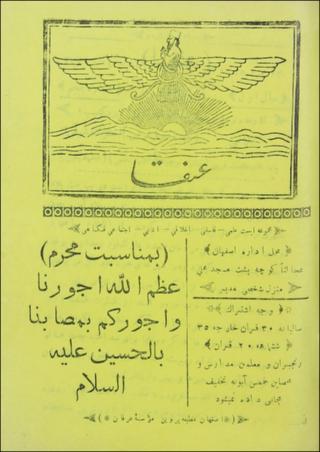 عنقا
مجموعه ایست علمی - فلسفی - اخلاقی - ادبی - اجتماعی فکاهی
(بمناسبت محرم)
عظم الله اجورنا
واجورکم بمصابنا
بالحسین علیه
السلام
محل اداره اصفهان
کوچه پشت مسجد
منزل شخصی مدیر
وجه اشتراک
سالیانه ۳۰ قران خارجه ۳۵
ششماهه ۲۰ قران
رنجبران و معلمین مدارس و
محصلین خمس آبونه تخفیف
مجانی داده نمیشود
اصفهان مطبعه پروین مؤسسه عرفان